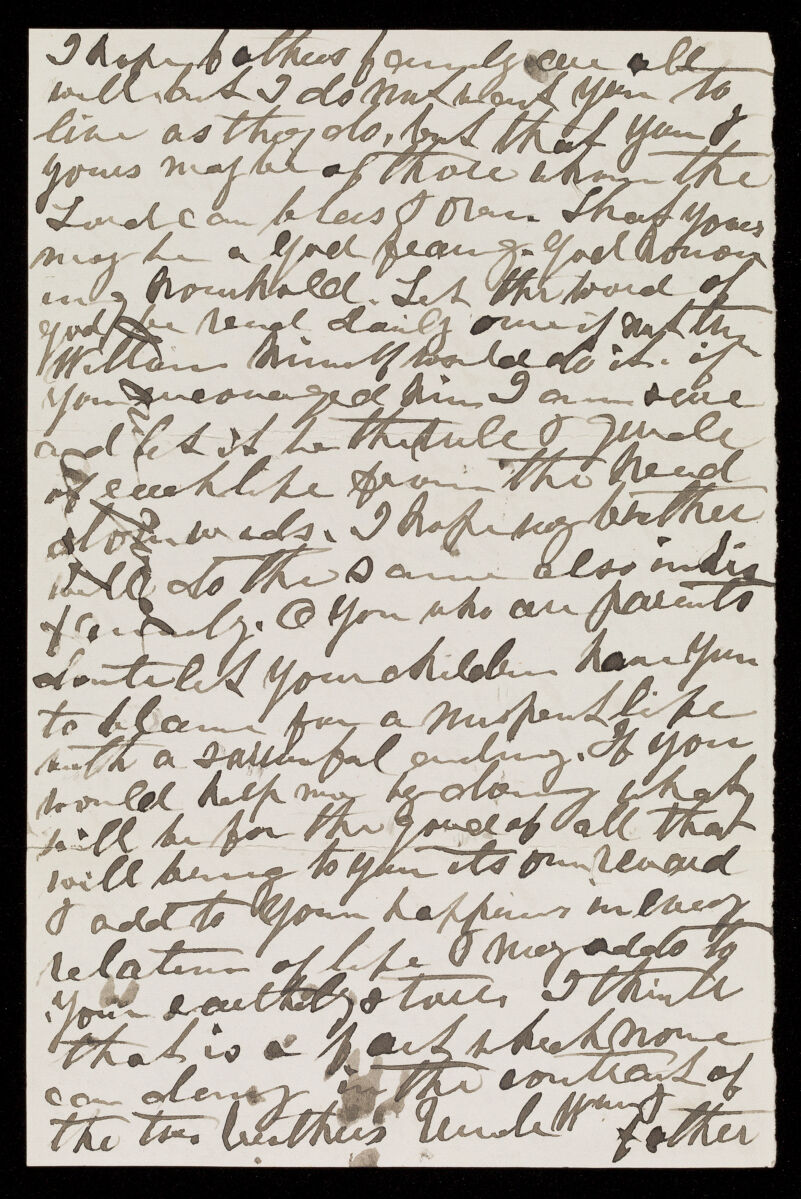 I hope fathers family are all
well but I do not want you to
live as they do, but that you &
yours may be of those whom the
Lord can bless & own. That yours
may be a God fearing. God honor
ing household. Let the word of
god be read daily once if not the
William himself would do it. if
you encouraged him I am sure
and let it be the rule & guide
of each life from the head
downwards. I hope my brother
will do the same also in his
family. O you who are parents
dont let your children have you
to blame for a mispent life
with a sorrowful ending. If you
would help me by doing what
will be for the good of all that
will bring to you its own reward
& add to your happiness in every
relation of life & may add to
your earthly stores I think
that is a fact which none
can deny in the contrast of
the two brothers Uncle Wm &
father